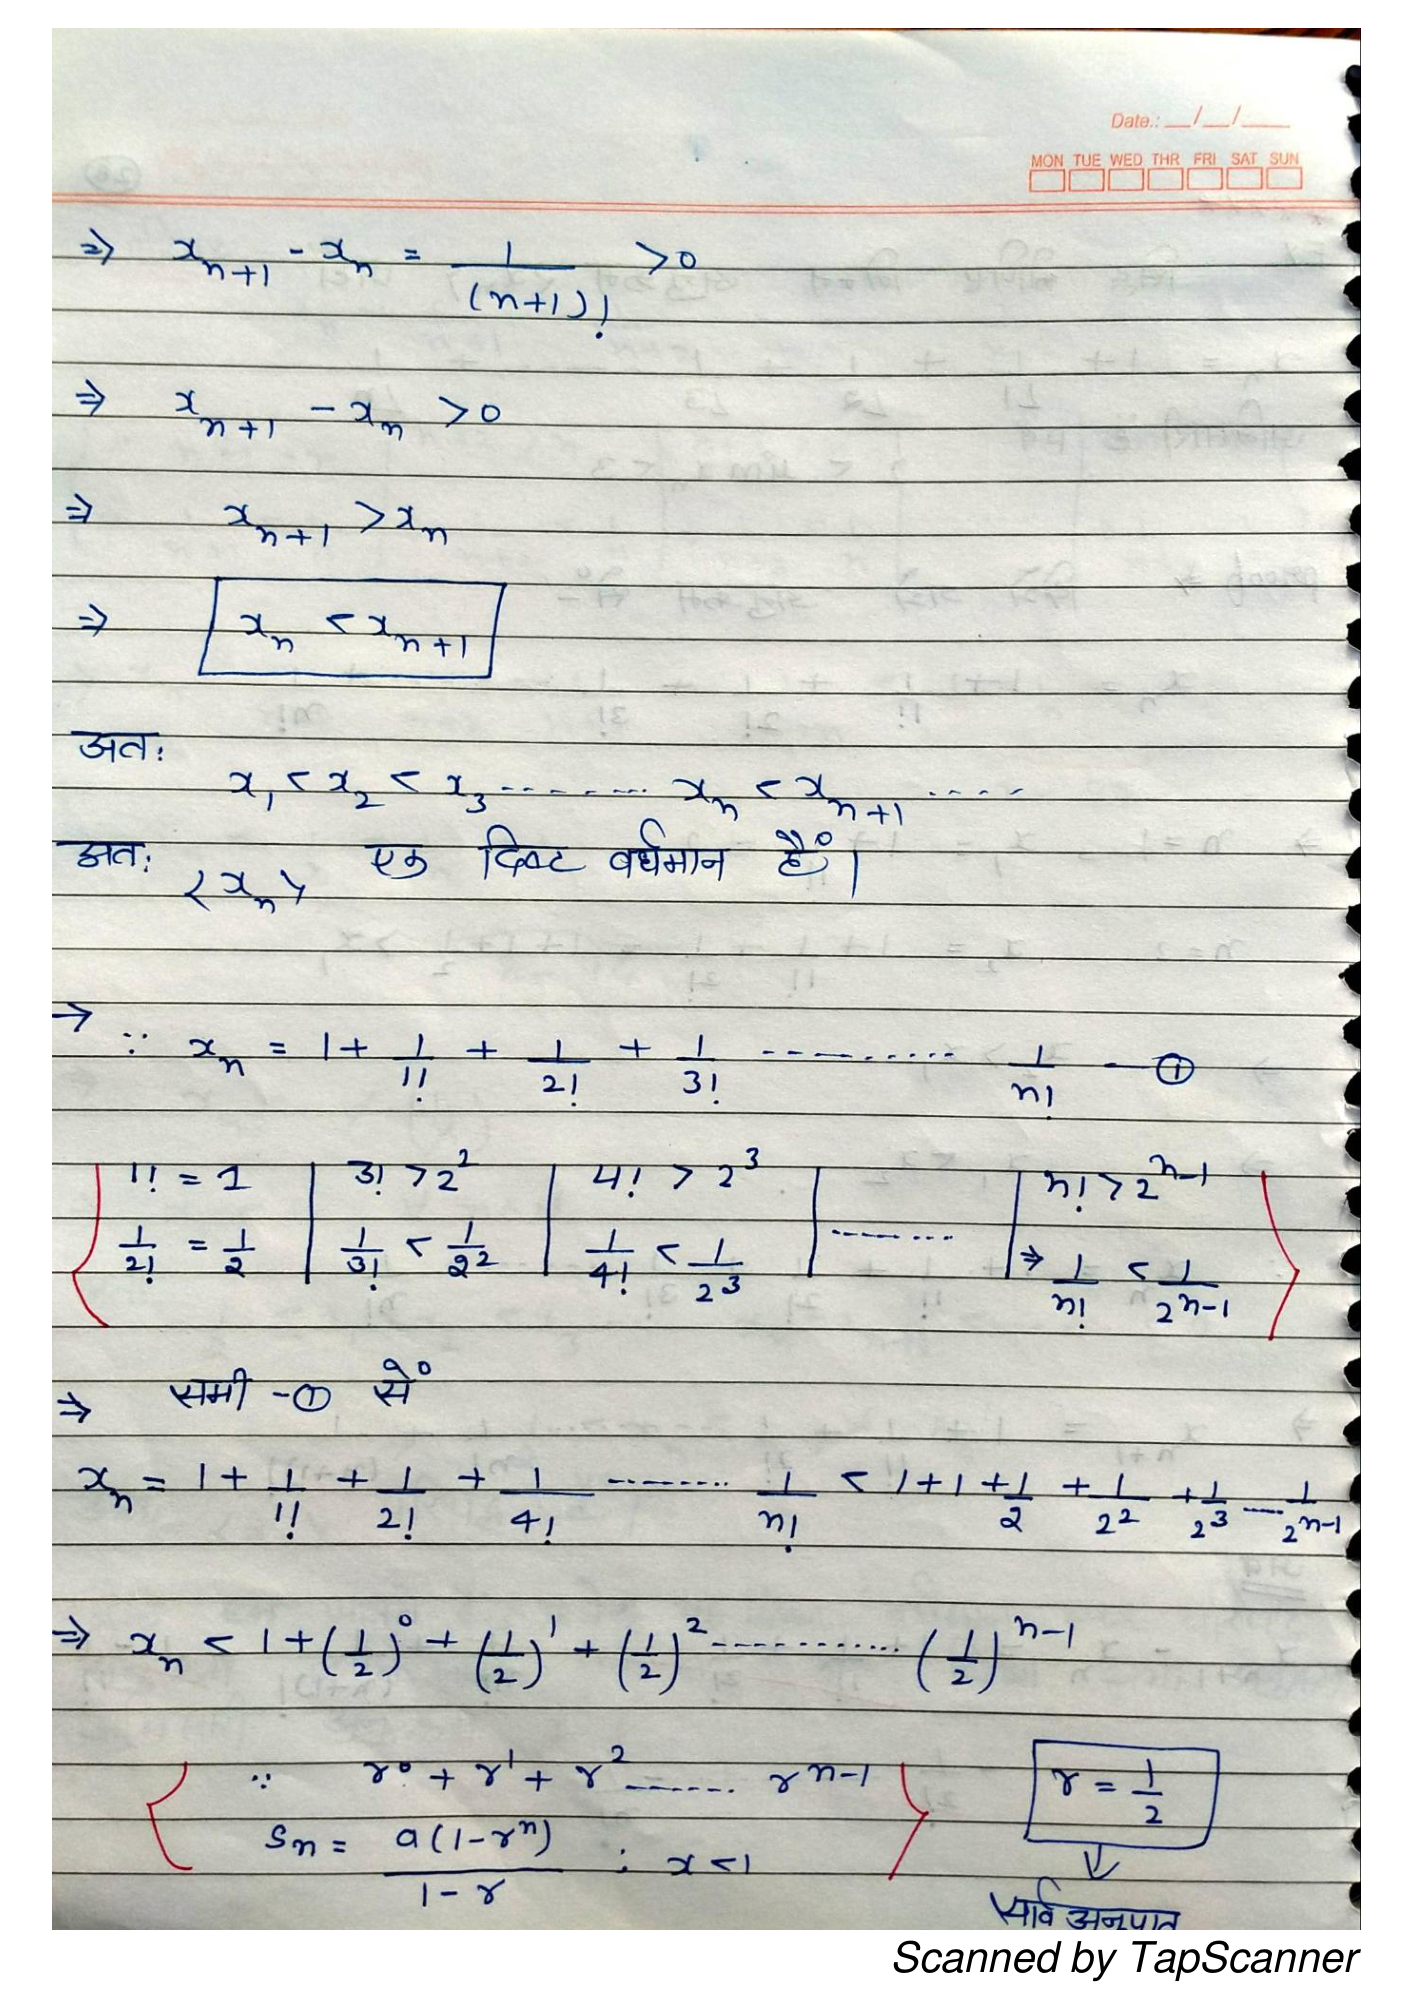 Date.: __/__/___
MON TUE WED THR FRI SAT SUN
⇒ x_{n+1} - x_n = 1/(n+1)! >0
⇒ x_{n+1} - x_n >0
⇒ x_{n+1} > x_n
⇒ x_n < x_{n+1}
अतः
x_1 < x_2 < x_3 ------- x_n < x_{n+1} ----
अतः <x_n> एक दिष्ट वर्धमान है।
→ ∵ x_n = 1 + 1/1! + 1/2! + 1/3! ---------- 1/n! — ①
1! = 1 | 3! > 2^2 | 4! > 2^3 | | n! > 2^{n-1}
1/2! = 1/2 | 1/3! < 1/2^2 | 1/4! < 1/2^3 | -------- | ⇒ 1/n! < 1/2^{n-1}
⇒ समी -① से
x_n = 1 + 1/1! + 1/2! + 1/4! -------- 1/n! < 1+1+1/2 + 1/2^2 + 1/2^3 ---- 1/2^{n-1}
⇒ x_n < 1 + (1/2)^0 + (1/2)^1 + (1/2)^2 ----------- (1/2)^{n-1}
∵ r^0 + r^1 + r^2 ------ r^{n-1}
r = 1/2
S_n = a(1-r^n)/(1-r) ; x<1
सार्व अनुपात
Scanned by TapScanner